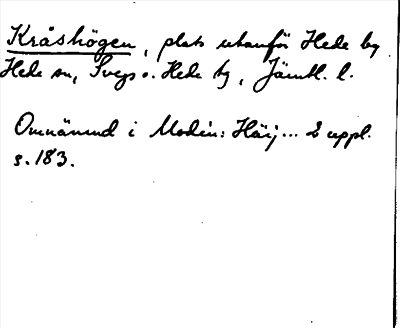 Kråshögen, plats utanför Hede by
Hede sn, Svegs o. Hede tg, Jämtl. l.
Omnämnd i Modin: Härj... 2 uppl.
s. 183.